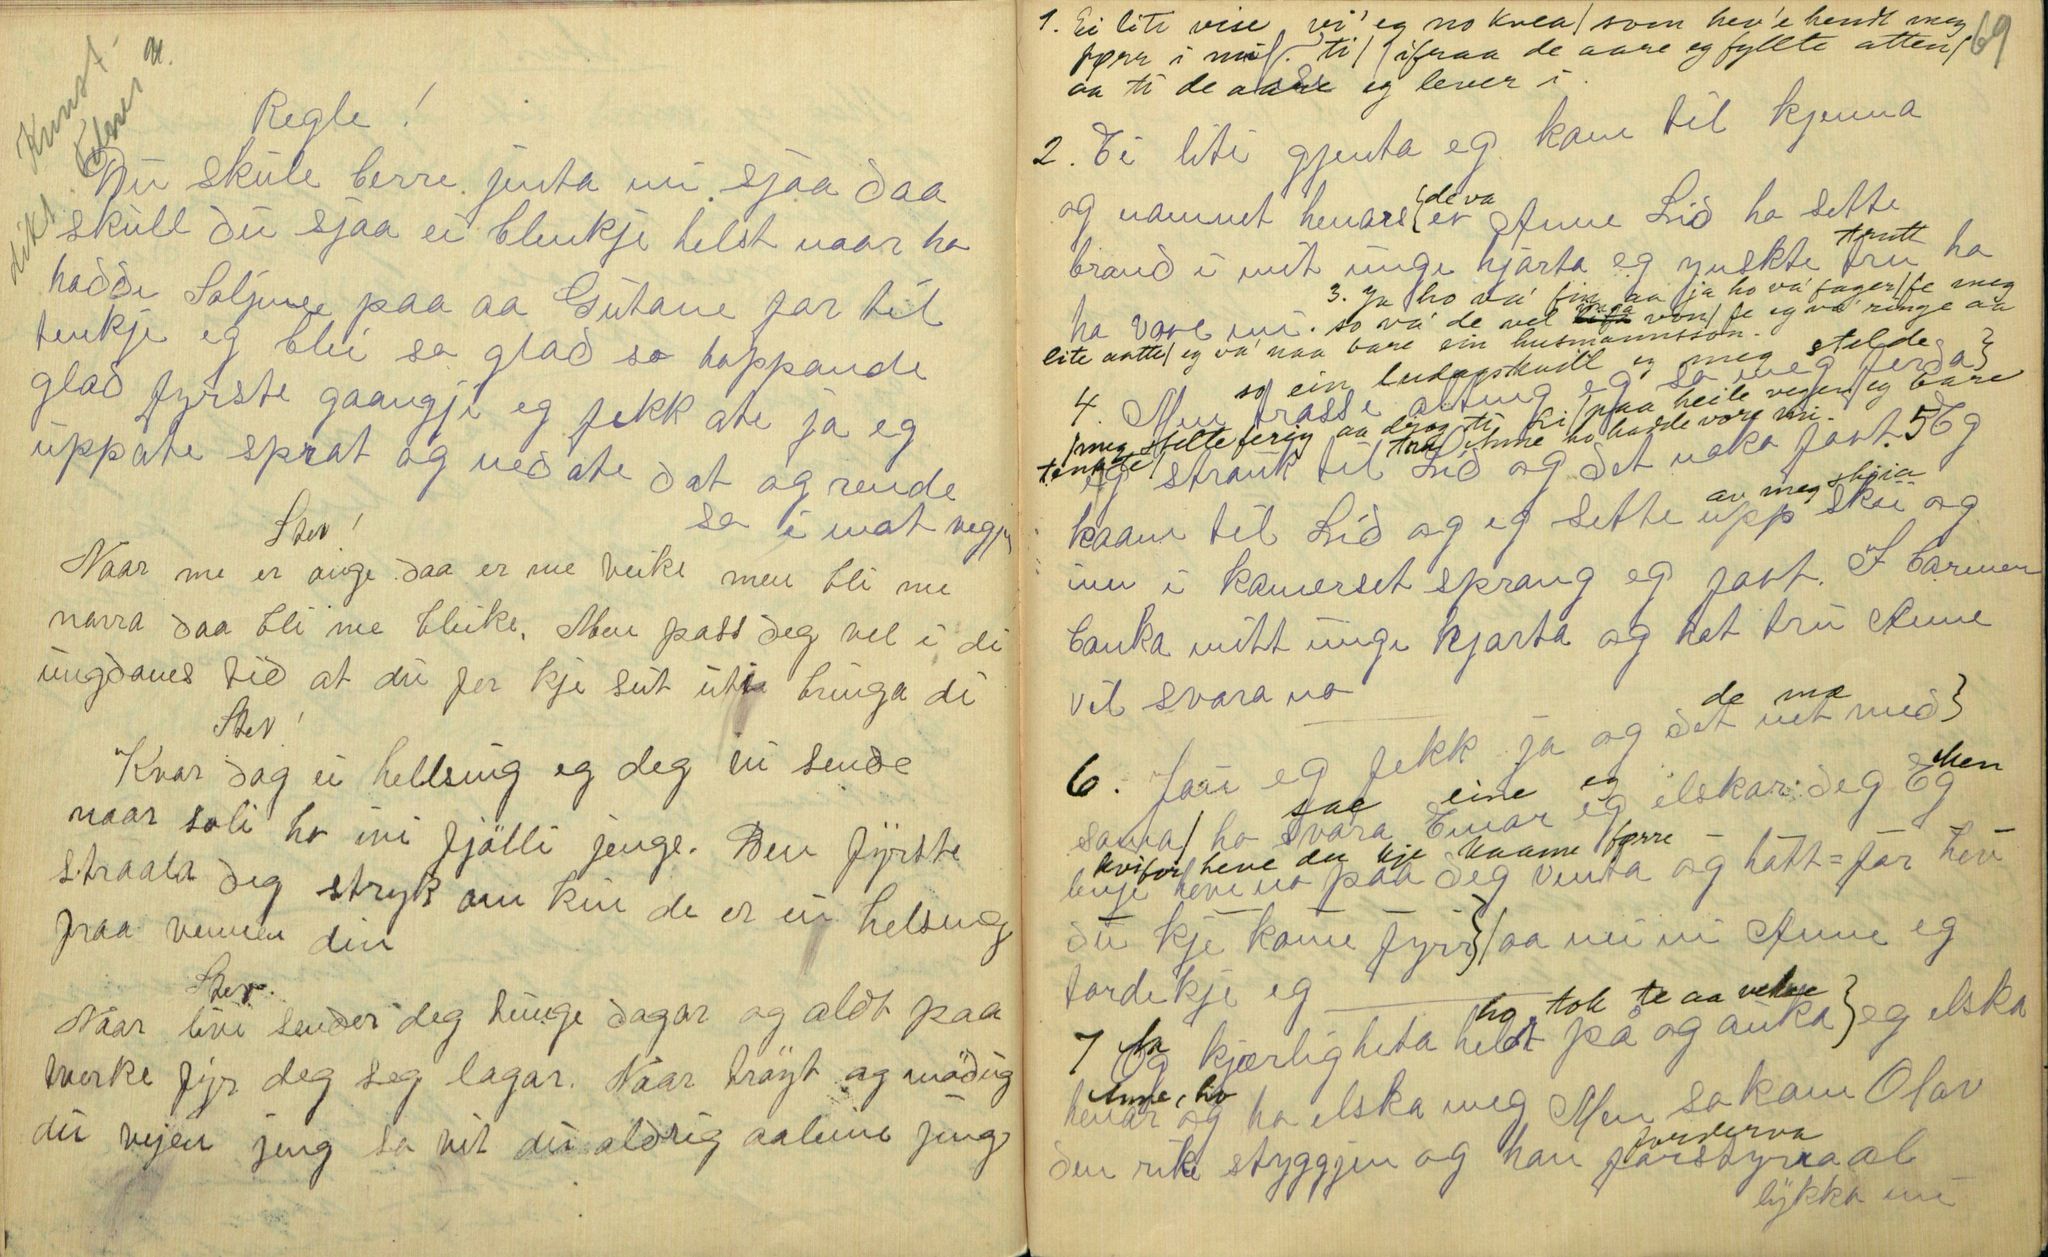 Kunst
dikt
Regle!
Nu skule berre jenta mi sjaa daa
skull du sjaa ei blenkje helst naar ho
hadde Soljune paa aa Gutane for til
tenkje eg blei so glad so hoppande
glad fyrste gaangji eg fekk ate ja eg
uppate sprat og nedate dat og rende
so i mot vegg
Stev!
Naar me er unge daa er me veike men bli me
narra daa bli me bleike. Men pass deg vel i di
ungdoms tid at du fer kje sut uti bringa di
Stev!
Kvar dag ei hellsing eg deg vi sende
naar soli ho ivi fjølli jenge. Den fyrste
straala deg stryk om kin de er ei helsing
fraa vennen din
Stev.
Naar live sender deg tunge dagar og aldt paa
tverke fyr deg seg lagar. Naar trøyt og møding
du vejen jeng so vit du aldrig aaleine jeng
69
1. Ei liti vise vi' eg no kvea / som hev'e hendt meg
førr i mi ti / ifraa de aare eg fyllte atten /
aa ti de aare eg lever i.
2. Ei liti gjenta eg kom til kjenna
og namnet henars { de va
er Anne Lid ho sette
brand i mit unge hjarta eg ynskte trutt
tru ho
ha vore mi. 3. Ja ho va' fin aa ja ho va' fager / fe meg
so va' de vel inga von / fe eg va' ringe aa
lite aatte / eg va' naa bare ein husmannsson.
4. so ein laudagskvell eg meg stelde
Men trasse alting eg so meg ferda }
/ meg stellte ferig aa drog ti Li / paa heile vegen eg bare
tenkte / tru Anne ho hadde vore mi.
eg strauk til Lid og det noko fort. 5 Eg
kaam til Lid og eg sette upp av meg skoia
skoi og
inn i kamerset sprang eg fort. I barmen
banka mitt unge hjarta og ket tru Anne
vil svara no
6. Jau eg fekk ja og det de mæ
net med }
sanna / ho sae eine eg
svara Einar eg elskar deg Men
Eg
kvifor heve du kje kaame førre
lenje heve no paa deg venta og hått = før hev
du kje kome fyrr } / aa nei mi Anne eg
tordekje eg
7 Aa ho tok te aa vekse
Og kjærligheta heldt på og auka } eg elska
Anne, ho
henar og ho elska meg Men so kom Olav
den rike styggjen og han forderva
forstyrra al
lykka mi